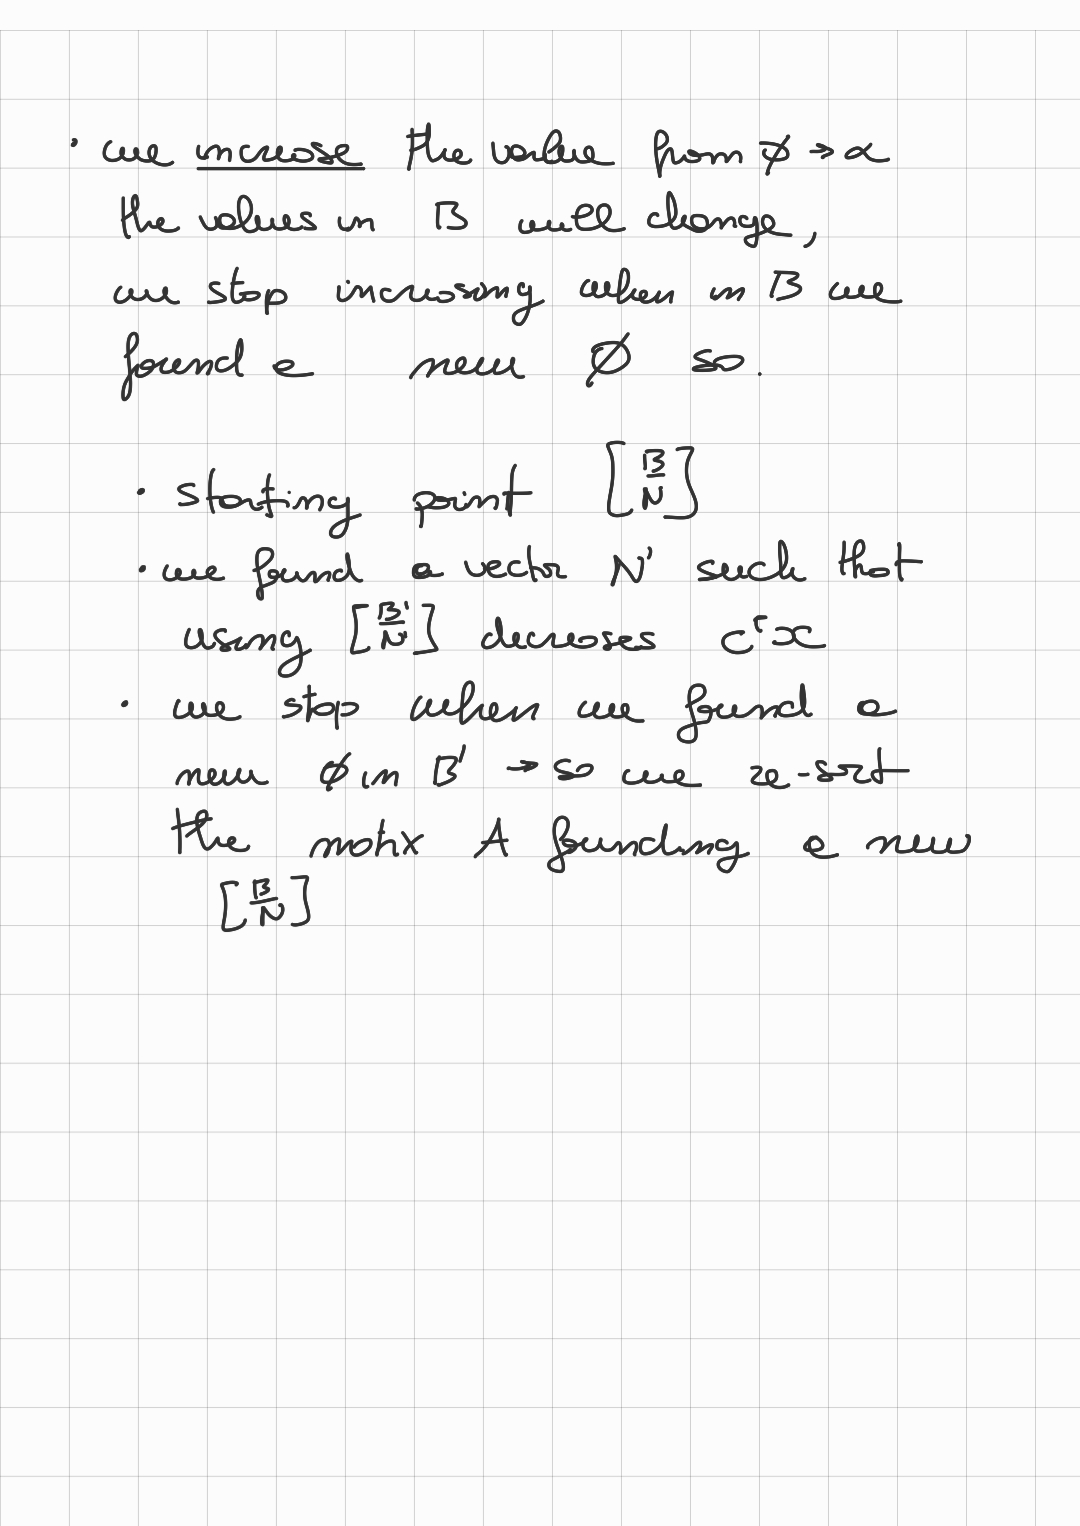 · we increase the value from ∅ → α
the values in B will change,
we stop increasing when in B we
found a new ∅ so.
· starting point [B/N]
· we found a vector N' such that
using [B'/N'] decreases cᵀx
· we stop when we found a
new ∅ in B' → so we re-sort
the matrix A founding a new
[B/N]